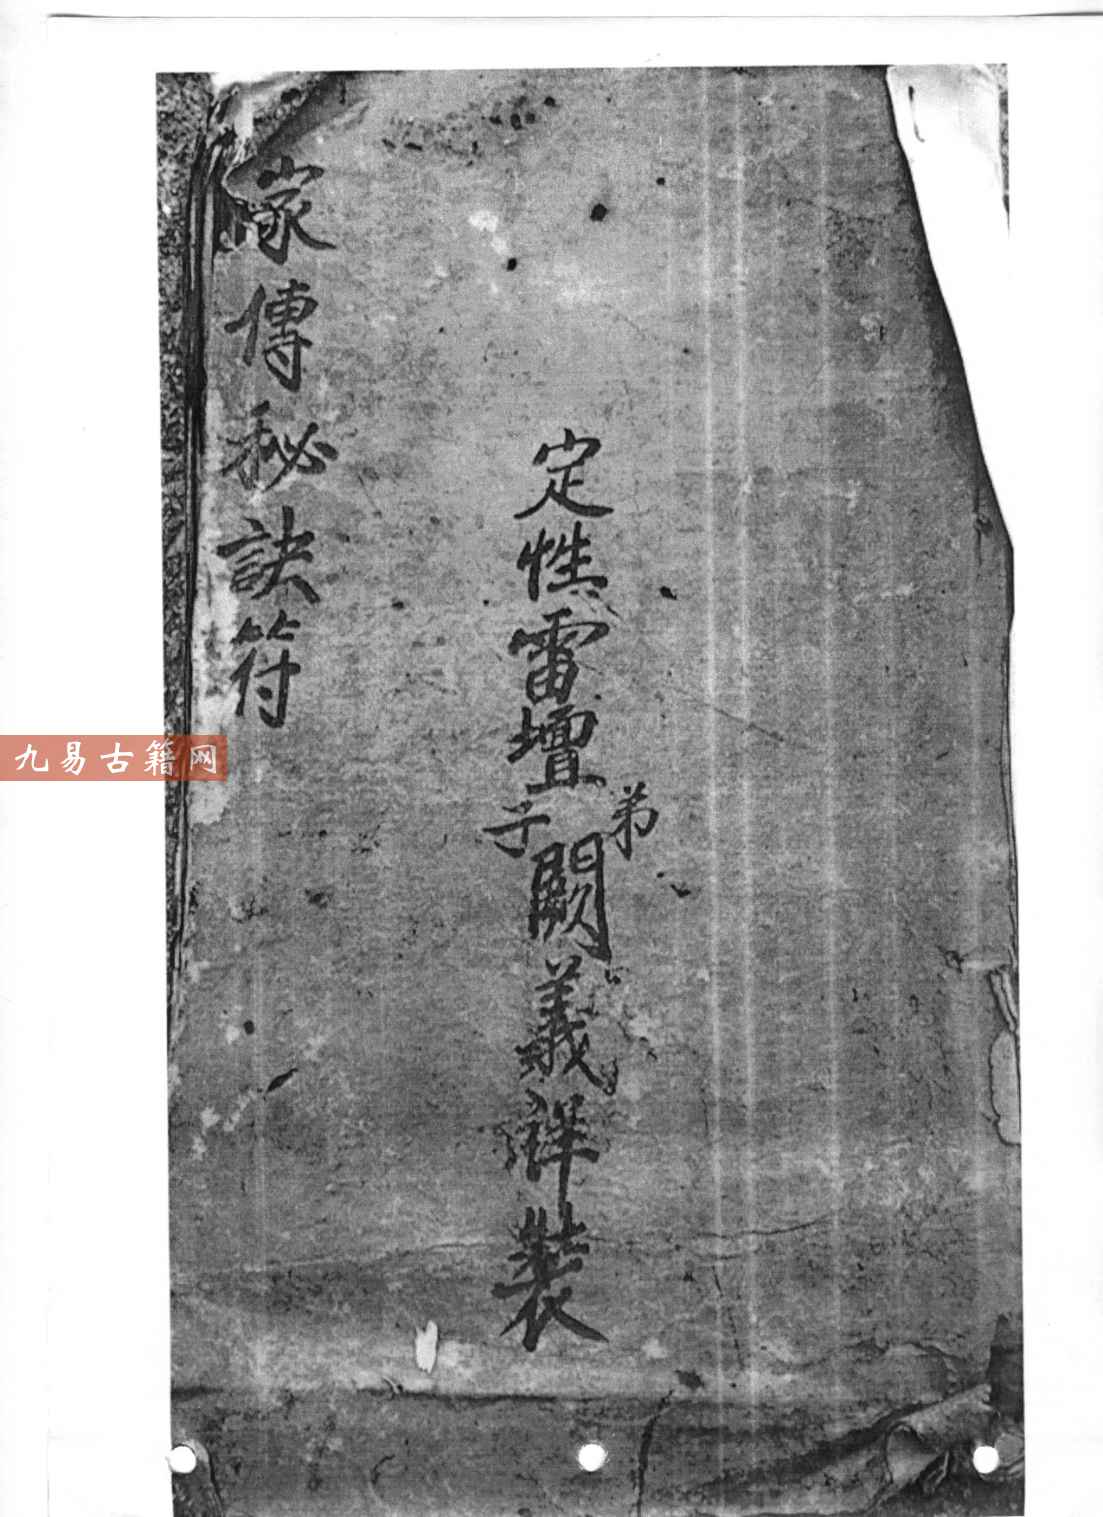 定性雷壇弟子闕義祥裝
家傳秘訣符
九易古籍网